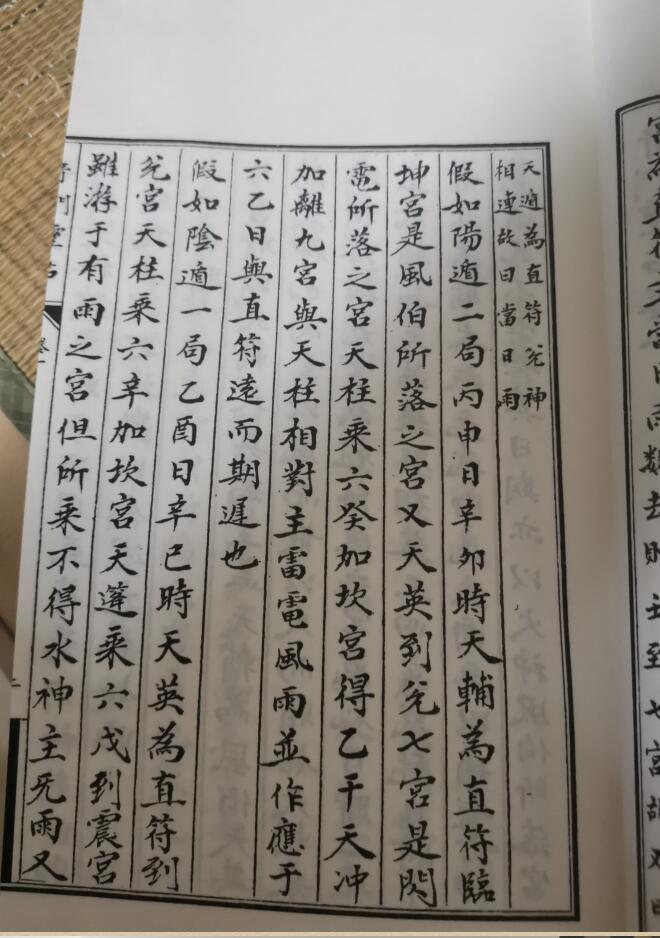 天遁為直符兌神
相連故曰當日雨
假如陽遁二局丙申日辛卯時天輔為直符臨
坤宮是風伯所落之宮又天英到兌七宮是閃
電所落之宮天柱乘六癸加坎宮得乙干天冲
加離九宮與天柱相對主雷電風雨並作應于
六乙日與直符遠而期遲也
假如陰遁一局乙酉日辛巳時天英為直符到
兌宮天柱乘六辛加坎宮天蓬乘六戊到震宮
雖游于有雨之宮但所乘不得水神主旡雨又